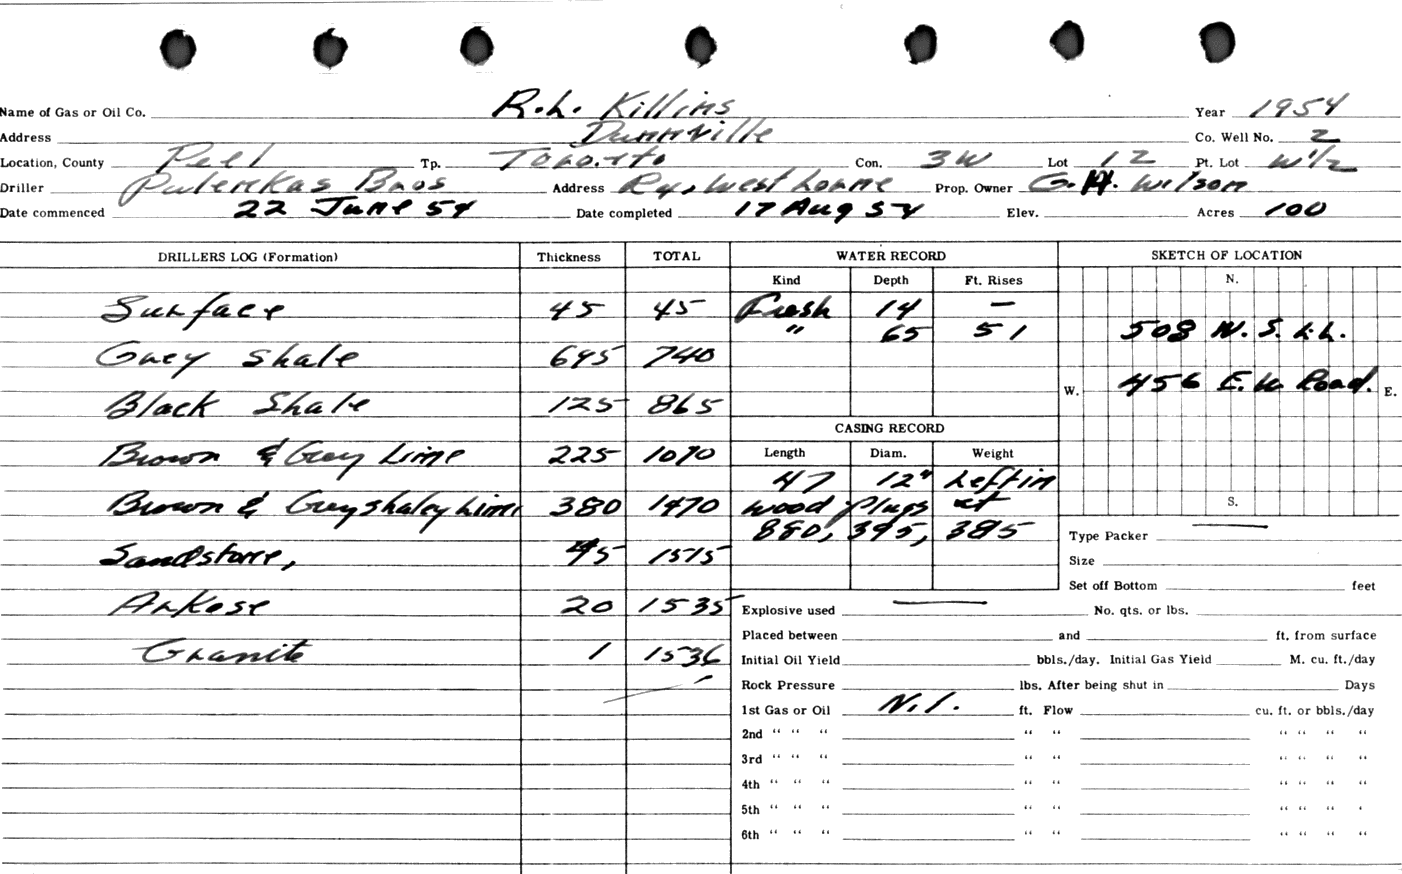 Name of Gas or Oil Co. R.L. Killins Year 1954
Address Dunnville Co. Well No. 2
Location, County Peel Tp. Toronto Con. 3W Lot 12 Pt. Lot W 1/2
Driller Bros Address Prop. Owner G.H. Wilson
Date commenced 22 June 54 Date completed 17 Aug 54 Elev. Acres 100
DRILLERS LOG (Formation) Thickness TOTAL
Surface 45 45
Grey Shale 695 740
Black Shale 125 865
Brown & Grey Lime 225 1090
Brown & Grey shaley Lime 380 1470
Sandstone, 45 1515
Arkose 20 1535
Granite 1 1536
WATER RECORD
Kind Depth Ft. Rises
Fresh 14 –
" 65 51
CASING RECORD
Length Diam. Weight
47 12" Left in
wood plugs at
880, 395, 385
SKETCH OF LOCATION
N.
508 N. S. L.L.
W. 456 E. W Road. E.
S.
Type Packer —
Size
Set off Bottom feet
Explosive used — No. qts. or lbs.
Placed between and ft. from surface
Initial Oil Yield bbls./day. Initial Gas Yield M. cu. ft./day
Rock Pressure lbs. After being shut in Days
1st Gas or Oil Nil. ft. Flow cu. ft. or bbls./day
2nd " " " " " " " " "
3rd " " " " " " " " "
4th " " " " " " " " "
5th " " " " " " " " '
6th " " " " " " " " "